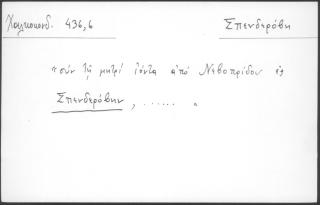 Χαλκοκονδ. 436,6 Σπενδερόβη
"σὺν τῇ μητρὶ ἰόντα ἀπὸ Νεβοπρίδου ἐς
Σπενδερόβην, ...... "